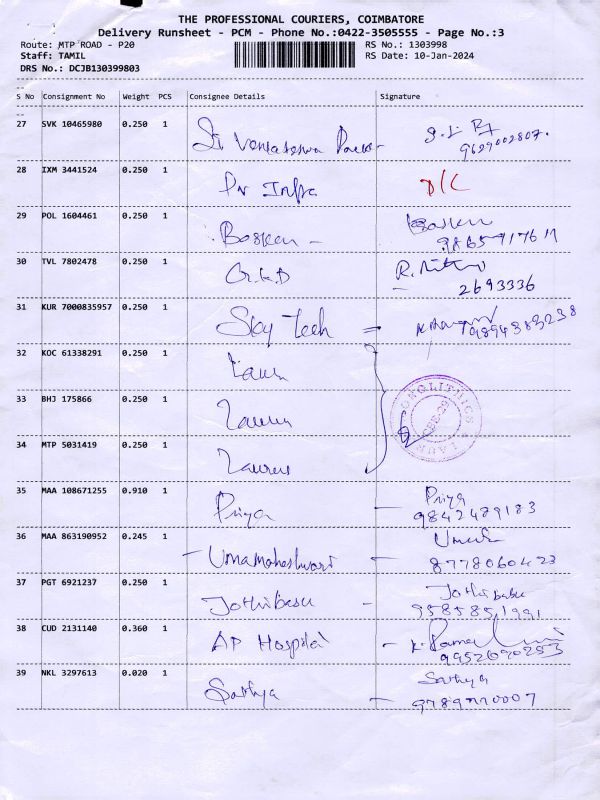 THE PROFESSIONAL COURIERS, COIMBATORE
Delivery Runsheet - PCM - Phone No.:0422-3505555 - Page No.:3
Route: MTP ROAD - P20 RS No.: 1303998
Staff: TAMIL RS Date: 10-Jan-2024
DRS No.: DCJB130399803
S No Consignment No Weight PCS Consignee Details Signature
27 SVK 10465980 0.250 1
9629002807.
28 IXM 3441524 0.250 1 PN Infra D/C
29 POL 1604461 0.250 1 Bosken -
30 TVL 7802478 0.250 1 G.K.D
2693336
31 KUR 7000835957 0.250 1 Sky Tech = 9894383238
32 KOC 61338291 0.250 1
33 BHJ 175866 0.250 1
34 MTP 5031419 0.250 1
35 MAA 108671255 0.910 1 Priya - Priya
9842489183
36 MAA 863190952 0.245 1 - Umamaheshwari -
8778060423
37 PGT 6921237 0.250 1 Jothibasu - Jothibabu
9585851991
38 CUD 2131140 0.360 1 AP Hospital
9952690253
39 NKL 3297613 0.020 1 Sathya - Sathya